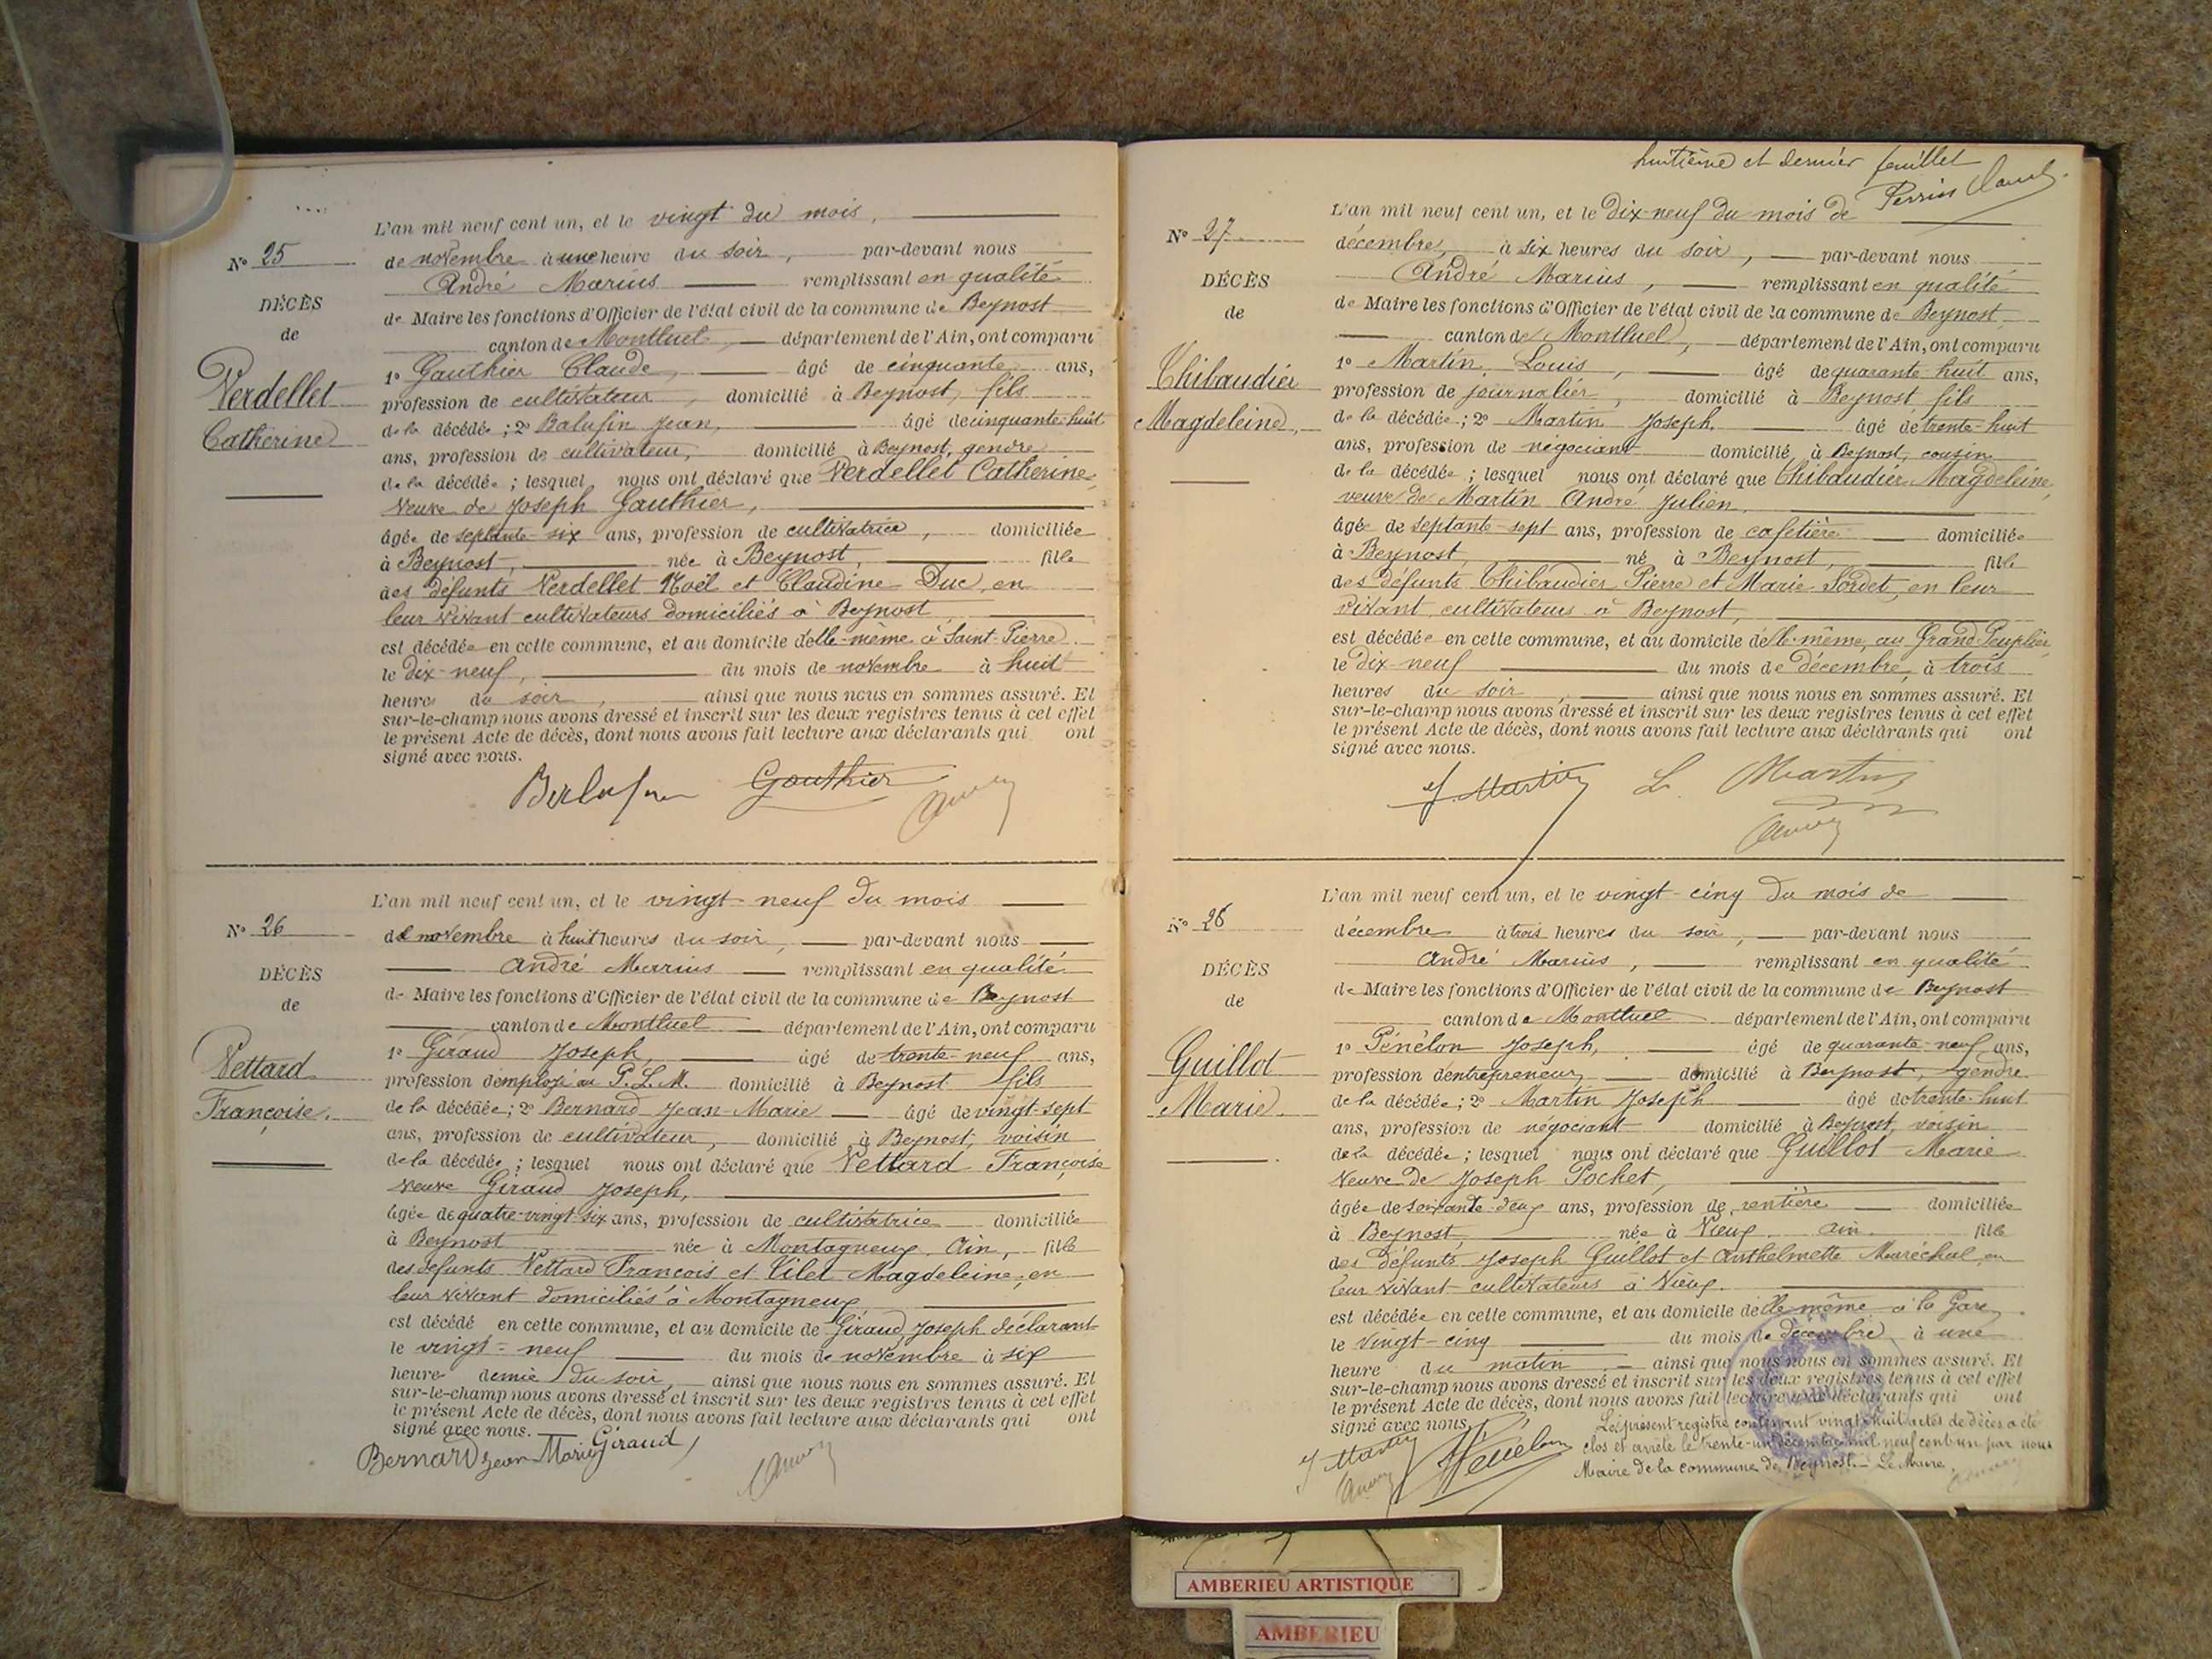 N° 25
DÉCÈS
de
Verdellet
Catherine
L'an mil neuf cent un, et le vingt du mois,
de novembre à une heure du soir, par-devant nous
André Marius remplissant en qualité
de Maire les fonctions d'Officier de l'état civil de la commune de Beynost
canton de Montluel, département de l'Ain, ont comparu
1° Gauthier Claude, âgé de cinquante ans,
profession de cultivateur, domicilié à Beynost, fils
de la décédée; 2° Balufin Jean, âgé de cinquante-huit
ans, profession de cultivateur, domicilié à Beynost, gendre
de la décédée; lesquel nous ont déclaré que Verdellet Catherine,
veuve de Joseph Gauthier,
âgée de septante-six ans, profession de cultivatrice, domiciliée
à Beynost, née à Beynost, fille
des défunts Verdellet Noël et Claudine Duc, en
leur vivant cultivateurs domiciliés à Beynost
est décédée en cette commune, et au domicile d'elle-même à Saint-Pierre
le dix-neuf, du mois de novembre à huit
heures du soir, ainsi que nous nous en sommes assuré. Et
sur-le-champ nous avons dressé et inscrit sur les deux registres tenus à cet effet
le présent Acte de décès, dont nous avons fait lecture aux déclarants qui ont
signé avec nous.
Gauthier
N° 26
DÉCÈS
de
Vettard
Françoise.
L'an mil neuf cent un, et le vingt-neuf du mois
de novembre à huit heures du soir, par-devant nous
André Marius remplissant en qualité
de Maire les fonctions d'Officier de l'état civil de la commune de Beynost
canton de Montluel département de l'Ain, ont comparu
1° Giraud Joseph, âgé de trente-neuf ans,
profession d'employé au P. L. M. domicilié à Beynost fils
de la décédée; 2° Bernard Jean-Marie âgé de vingt-sept
ans, profession de cultivateur, domicilié à Beynost, voisin
de la décédée; lesquel nous ont déclaré que Vettard Françoise
veuve Giraud Joseph,
âgée de quatre-vingt-six ans, profession de cultivatrice domiciliée
à Beynost née à Montagneux, Ain, fille
des défunts Vettard François et Vilet Magdeleine, en
leur vivant domiciliés à Montagneux
est décédé en cette commune, et au domicile de Giraud Joseph déclarant
le vingt-neuf du mois de novembre à six
heure demie du soir, ainsi que nous nous en sommes assuré. Et
sur-le-champ nous avons dressé et inscrit sur les deux registres tenus à cet effet
le présent Acte de décès, dont nous avons fait lecture aux déclarants qui ont
signé avec nous.
Bernard Jean Marie Giraud
huitième et dernier feuillet
Perrin
N° 27
DÉCÈS
de
Thibaudier
Magdeleine,
L'an mil neuf cent un, et le dix-neuf du mois de
décembre, à six heures du soir, par-devant nous
André Marius, remplissant en qualité
de Maire les fonctions d'Officier de l'état civil de la commune de Beynost
canton de Montluel, département de l'Ain, ont comparu
1° Martin Louis, âgé de quarante-huit ans,
profession de journalier, domicilié à Beynost fils
de la décédée; 2° Martin Joseph. âgé de trente-huit
ans, profession de négociant domicilié à Beynost, cousin
de la décédée; lesquel nous ont déclaré que Thibaudier Magdeleine,
veuve de Martin André Julien,
âgée de septante-sept ans, profession de cafetière domiciliée
à Beynost, né à Beynost, fille
des défunts Thibaudier Pierre et Marie Sordet, en leur
vivant cultivateurs à Beynost,
est décédée en cette commune, et au domicile d'elle-même, au Grand Peuplier
le dix-neuf du mois de décembre, à trois
heures du soir, ainsi que nous nous en sommes assuré. Et
sur-le-champ nous avons dressé et inscrit sur les deux registres tenus à cet effet
le présent Acte de décès, dont nous avons fait lecture aux déclarants qui ont
signé avec nous.
J. Martin L. Martin
N° 28
DÉCÈS
de
Guillot
Marie.
L'an mil neuf cent un, et le vingt-cinq du mois de
décembre à trois heures du soir, par-devant nous
André Marius, remplissant en qualité
de Maire les fonctions d'Officier de l'état civil de la commune de Beynost
canton de Montluel département de l'Ain, ont comparu
1° Pénélon Joseph, âgé de quarante-neuf ans,
profession d'entrepreneur domicilié à Beynost, gendre
de la décédée; 2° Martin Joseph âgé de trente-huit
ans, profession de négociant domicilié à Beynost, voisin
de la décédée; lesquel nous ont déclaré que Guillot Marie
veuve de Joseph Pochet,
âgée de soixante-deux ans, profession de rentière domiciliée
à Beynost, née à Vieux Ain fille
des défunts Joseph Guillot et Anthelmette Maréchal, en
leur vivant cultivateurs à Vieux.
est décédée en cette commune, et au domicile d'elle-même à la Gare,
le vingt-cinq du mois de décembre à une
heure du matin, ainsi que nous nous en sommes assuré. Et
sur-le-champ nous avons dressé et inscrit sur les deux registres tenus à cet effet
le présent Acte de décès, dont nous avons fait lecture aux déclarants qui ont
signé avec nous.
Le présent registre contenant vingt-huit actes de décès a été
clos et arrêté le trente-un décembre mil neuf cent un par nous
Maire de la commune de Beynost. — Le Maire,
J Martin Pénélon
AMBERIEU ARTISTIQUE
AMBERIEU